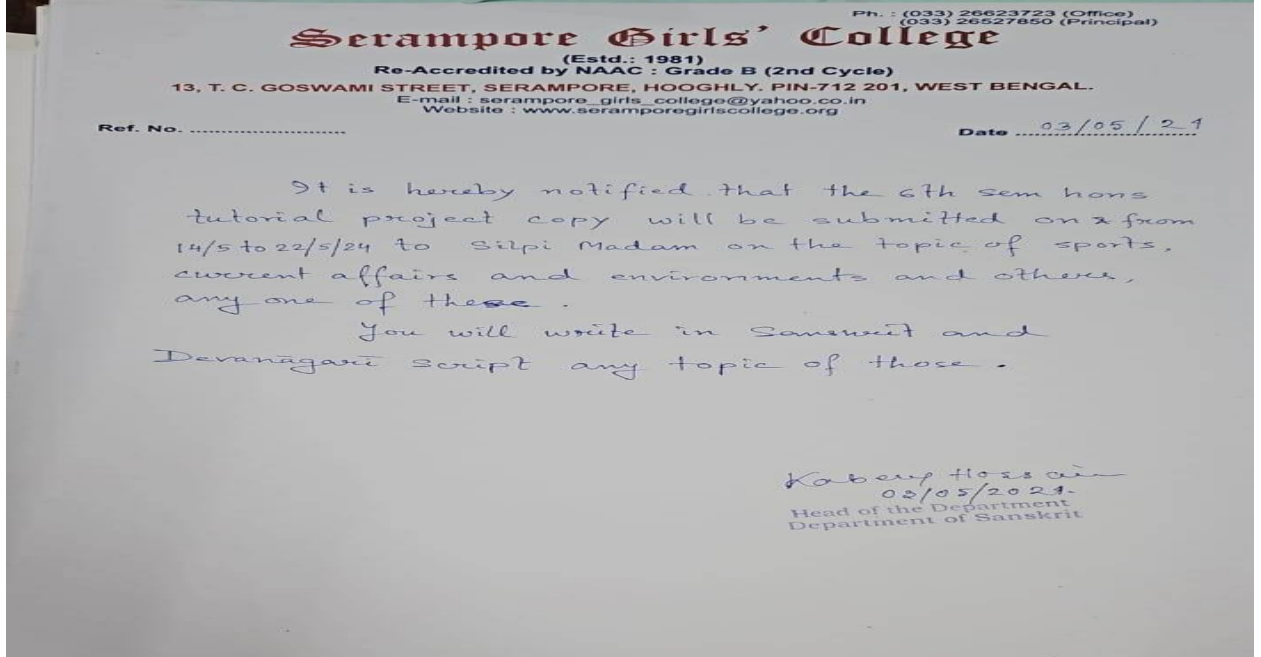 Ph. : (033) 26623723 (Office)
(033) 26527850 (Principal)
Serampore Girls' College
(Estd.: 1981)
Re-Accredited by NAAC : Grade B (2nd Cycle)
13, T. C. GOSWAMI STREET, SERAMPORE, HOOGHLY. PIN-712 201, WEST BENGAL.
E-mail : serampore_girls_college@yahoo.co.in
Website : www.seramporegirlscollege.org
Ref. No. ............................
Date 03/05/21
It is hereby notified that the 6th sem hons
tutorial project copy will be submitted on from
14/5 to 22/5/24 to Silpi Madam on the topic of sports,
current affairs and environments and others,
any one of these.
You will write in Sanskrit and
Devanāgarī script any topic of those.
Hossain
03/05/2021.
Head of the Department
Department of Sanskrit